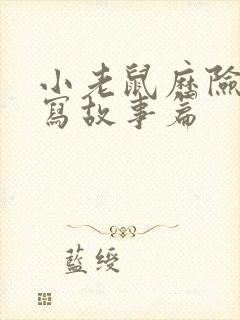 小老鼠历險
寫故事篇
藍綬